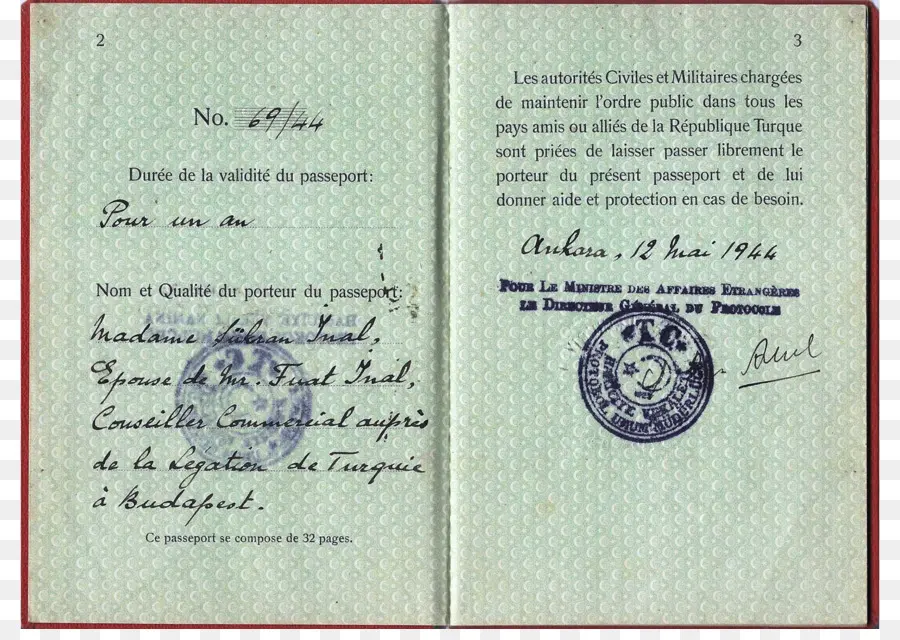 2
No. 69/44
Durée de la validité du passeport:
Pour un an
Nom et Qualité du porteur du passeport:
Madame Sükran Inal,
Epouse de Mr. Fuat Inal,
Conseiller Commercial auprès
de la Légation de Turquie
à Budapest.
Ce passeport se compose de 32 pages.
3
Les autorités Civiles et Militaires chargées
de maintenir l'ordre public dans tous les
pays amis ou alliés de la République Turque
sont priées de laisser passer librement le
porteur du présent passeport et de lui
donner aide et protection en cas de besoin.
Ankara, 12 Mai 1944
POUR LE MINISTRE DES AFFAIRES ETRANGÈRES
LE DIRECTEUR GÉNÉRAL DU PROTOCOLE
T.C.
HARİCİYE VEKÂLETİ
PROTOKOL UMUM MÜDÜRLÜĞÜ